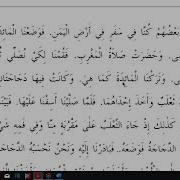 بَعْضُهُمْ كُنَّا فِي سَفَرٍ فِي أَرْضِ الْيَمَنِ. فَوَضَعْنَا الْمَائِدَ
ى. وَحَضَرَتْ صَلَاةُ الْمَغْرِبِ. فَقُمْنَا لِكَيْ نُصَلِّيَ
. وَتَرَكْنَا الْمَائِدَةَ كَمَا هِيَ. وَكَانَتْ فِيهَا دَجَاجَتَانِ
ثَعْلَبٌ وَأَخَذَ إِحْدَاهُمَا. فَلَمَّا صَلَّيْنَا أَسِفْنَا عَلَيْهَا. فَبَيْنَا
كَذَلِكَ إِذْ جَاءَ الثَّعْلَبُ عَلَى مَقْرُبَةٍ مِنَّا وَفِي فَمِهِ
الدَّجَاجَةُ فَوَضَعَهُ. فَبَادَرْنَا إِلَيْهِ وَنَحْنُ نَحْسَبُهُ الدَّجَاجَةَ